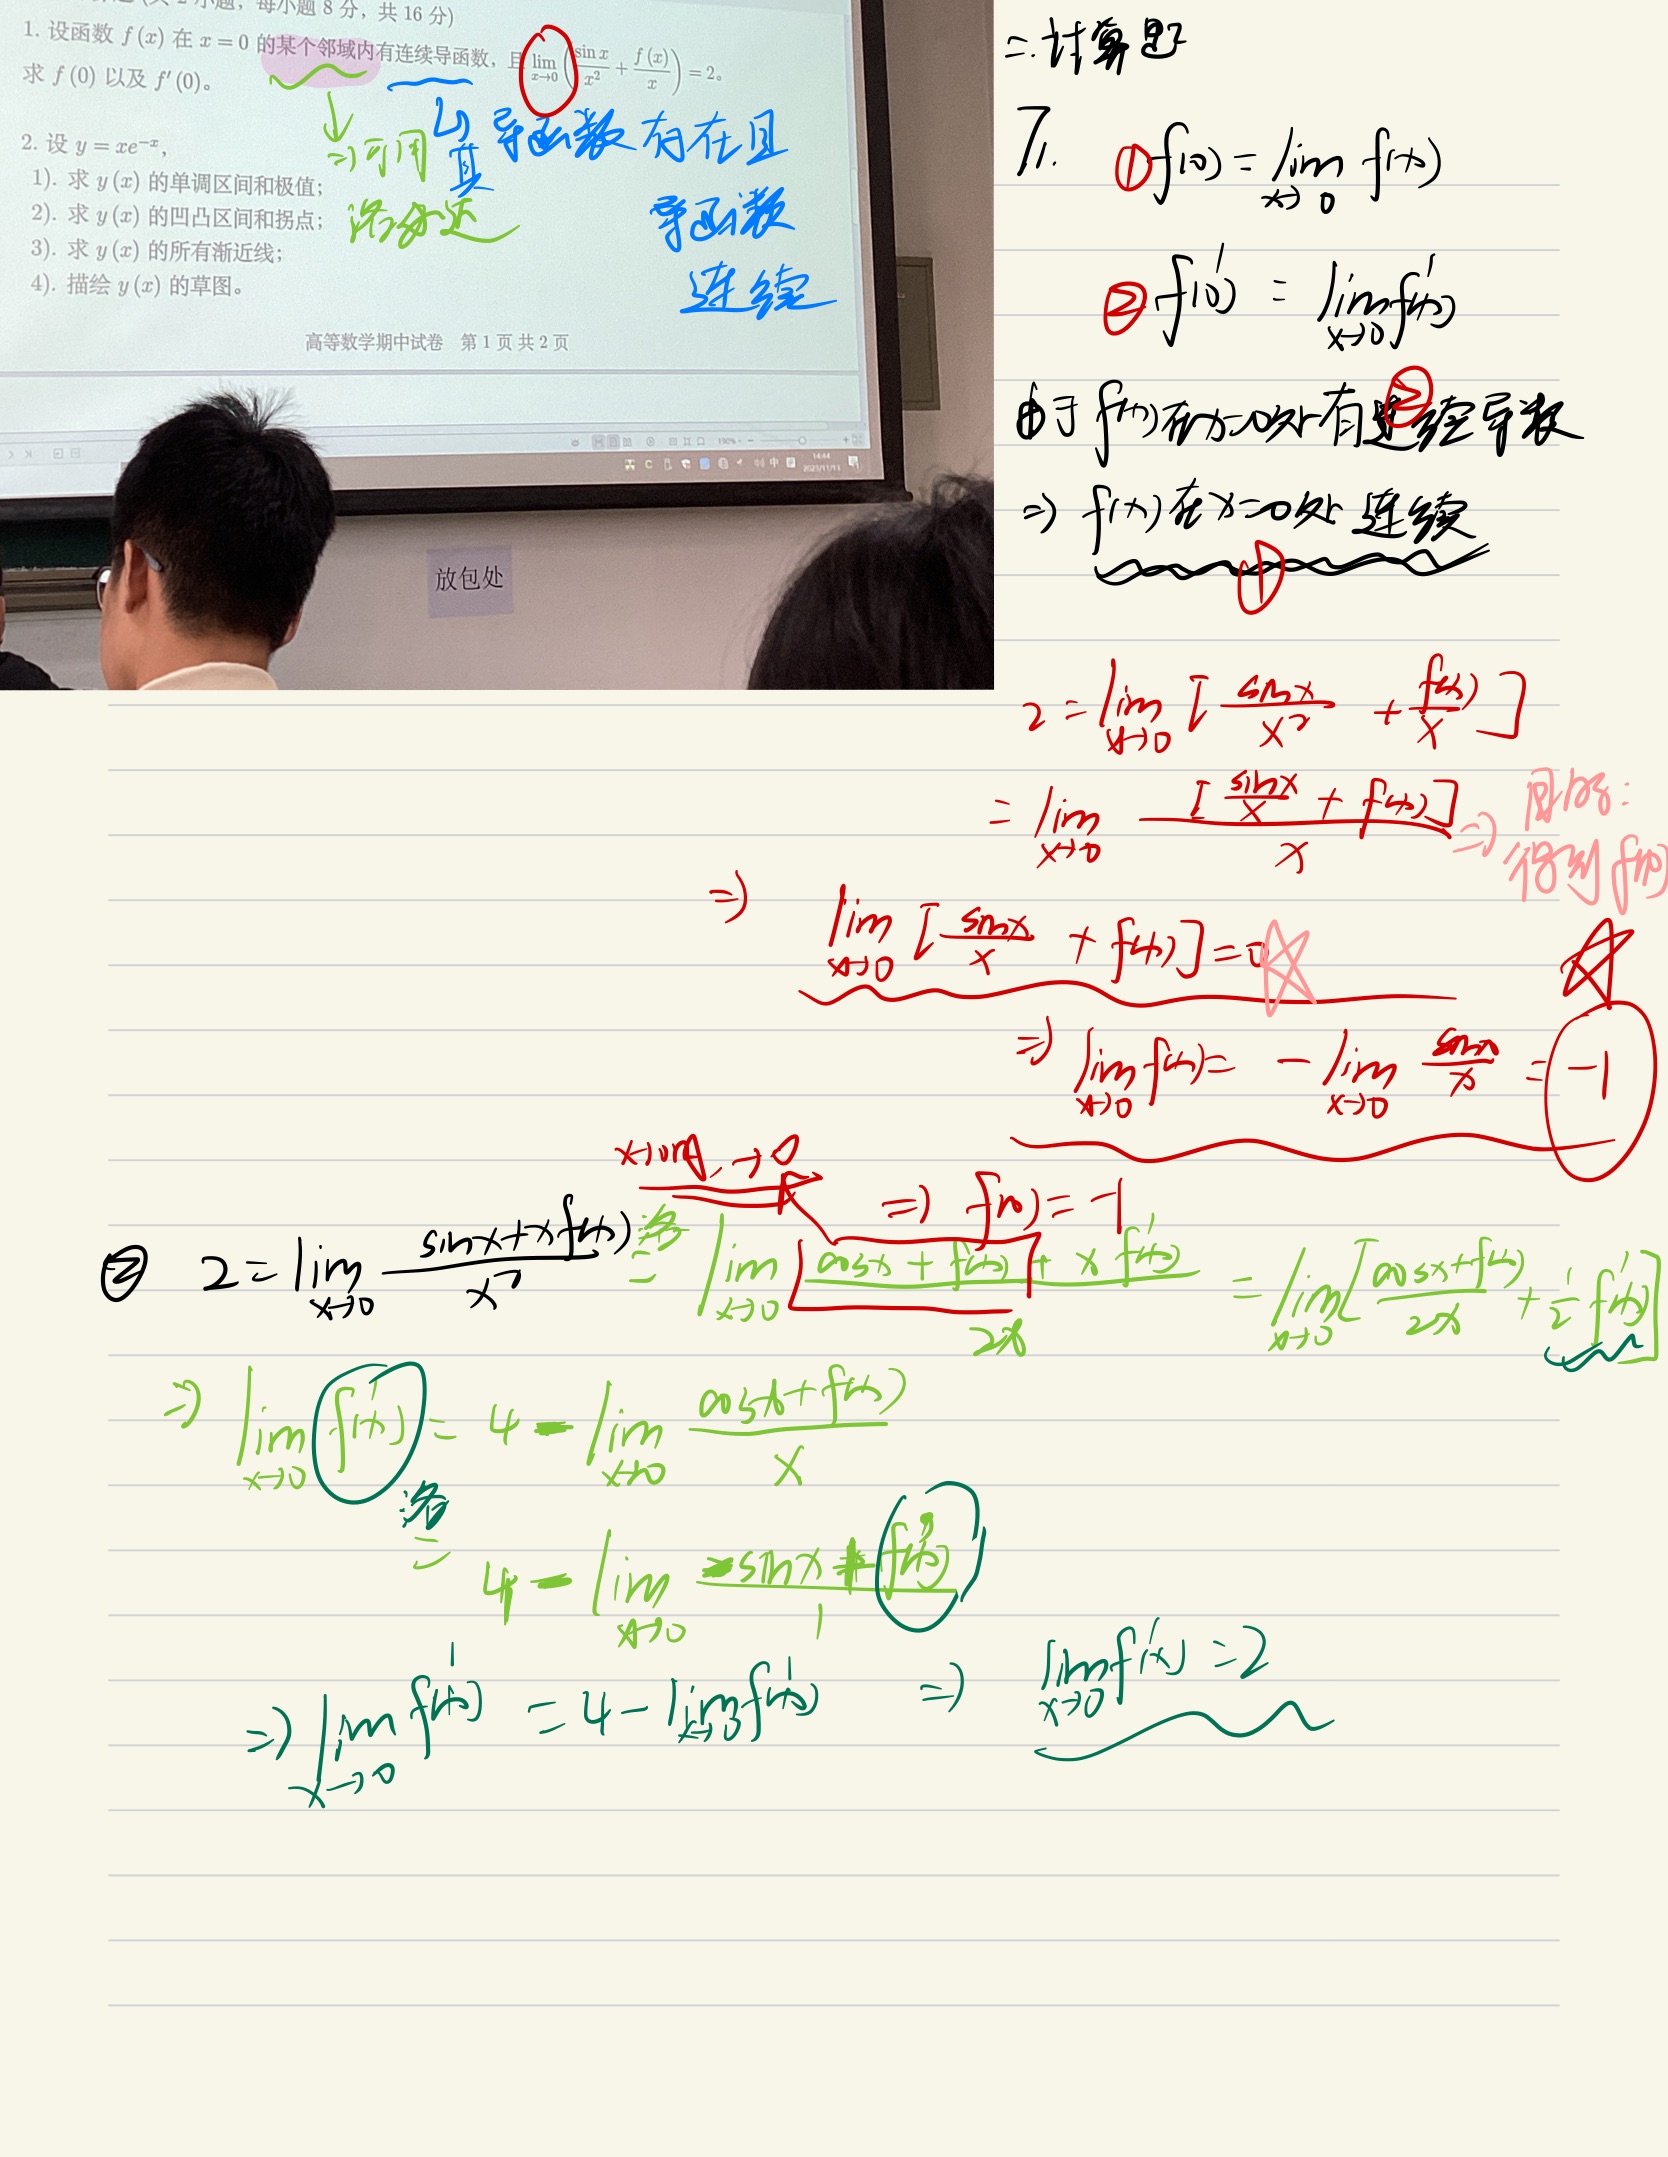 2 小题，每小题 8 分，共 16 分)
1. 设函数 f(x) 在 x=0 的某个邻域内有连续导函数，且 lim x→0 (sin x/x² + f(x)/x) = 2。
求 f(0) 以及 f′(0)。
2. 设 y=xe⁻ˣ,
1). 求 y(x) 的单调区间和极值；
2). 求 y(x) 的凹凸区间和拐点；
3). 求 y(x) 的所有渐近线；
4). 描绘 y(x) 的草图。
高等数学期中试卷 第 1 页 共 2 页
190%
14:44
2023/11/13
中
放包处
⇒可用
洛必达
其导函数存在且
导函数
连续
二.计算题
1. ① f(0) = lim x→0 f(x)
② f′(0) = lim x→0 f′(x)
由于 f(x)在x=0处有连续导数
②
⇒ f(x)在x=0处连续
①
2 = lim x→0 [sinx/x² + f(x)/x]
= lim x→0 [sinx/x + f(x)]/x
⇒
得到f(0)
⇒ lim x→0 [sinx/x + f(x)] = 0
⇒ lim x→0 f(x) = - lim x→0 sinx/x = -1
⇒ f(0) = -1
x→0时 →0
② 2 = lim x→0 (sinx+xf(x))/x² 洛= lim x→0 (cosx + f(x) + xf′(x))/2x = lim x→0 [(cosx+f(x))/2x + 1/2 f′(x)]
⇒ lim x→0 f′(x) = 4 - lim x→0 (cosx+f(x))/x
洛= 4 - lim x→0 (-sinx + f′(x))/1
⇒ lim x→0 f′(x) = 4 - lim x→0 f′(x) ⇒ lim x→0 f′(x) = 2